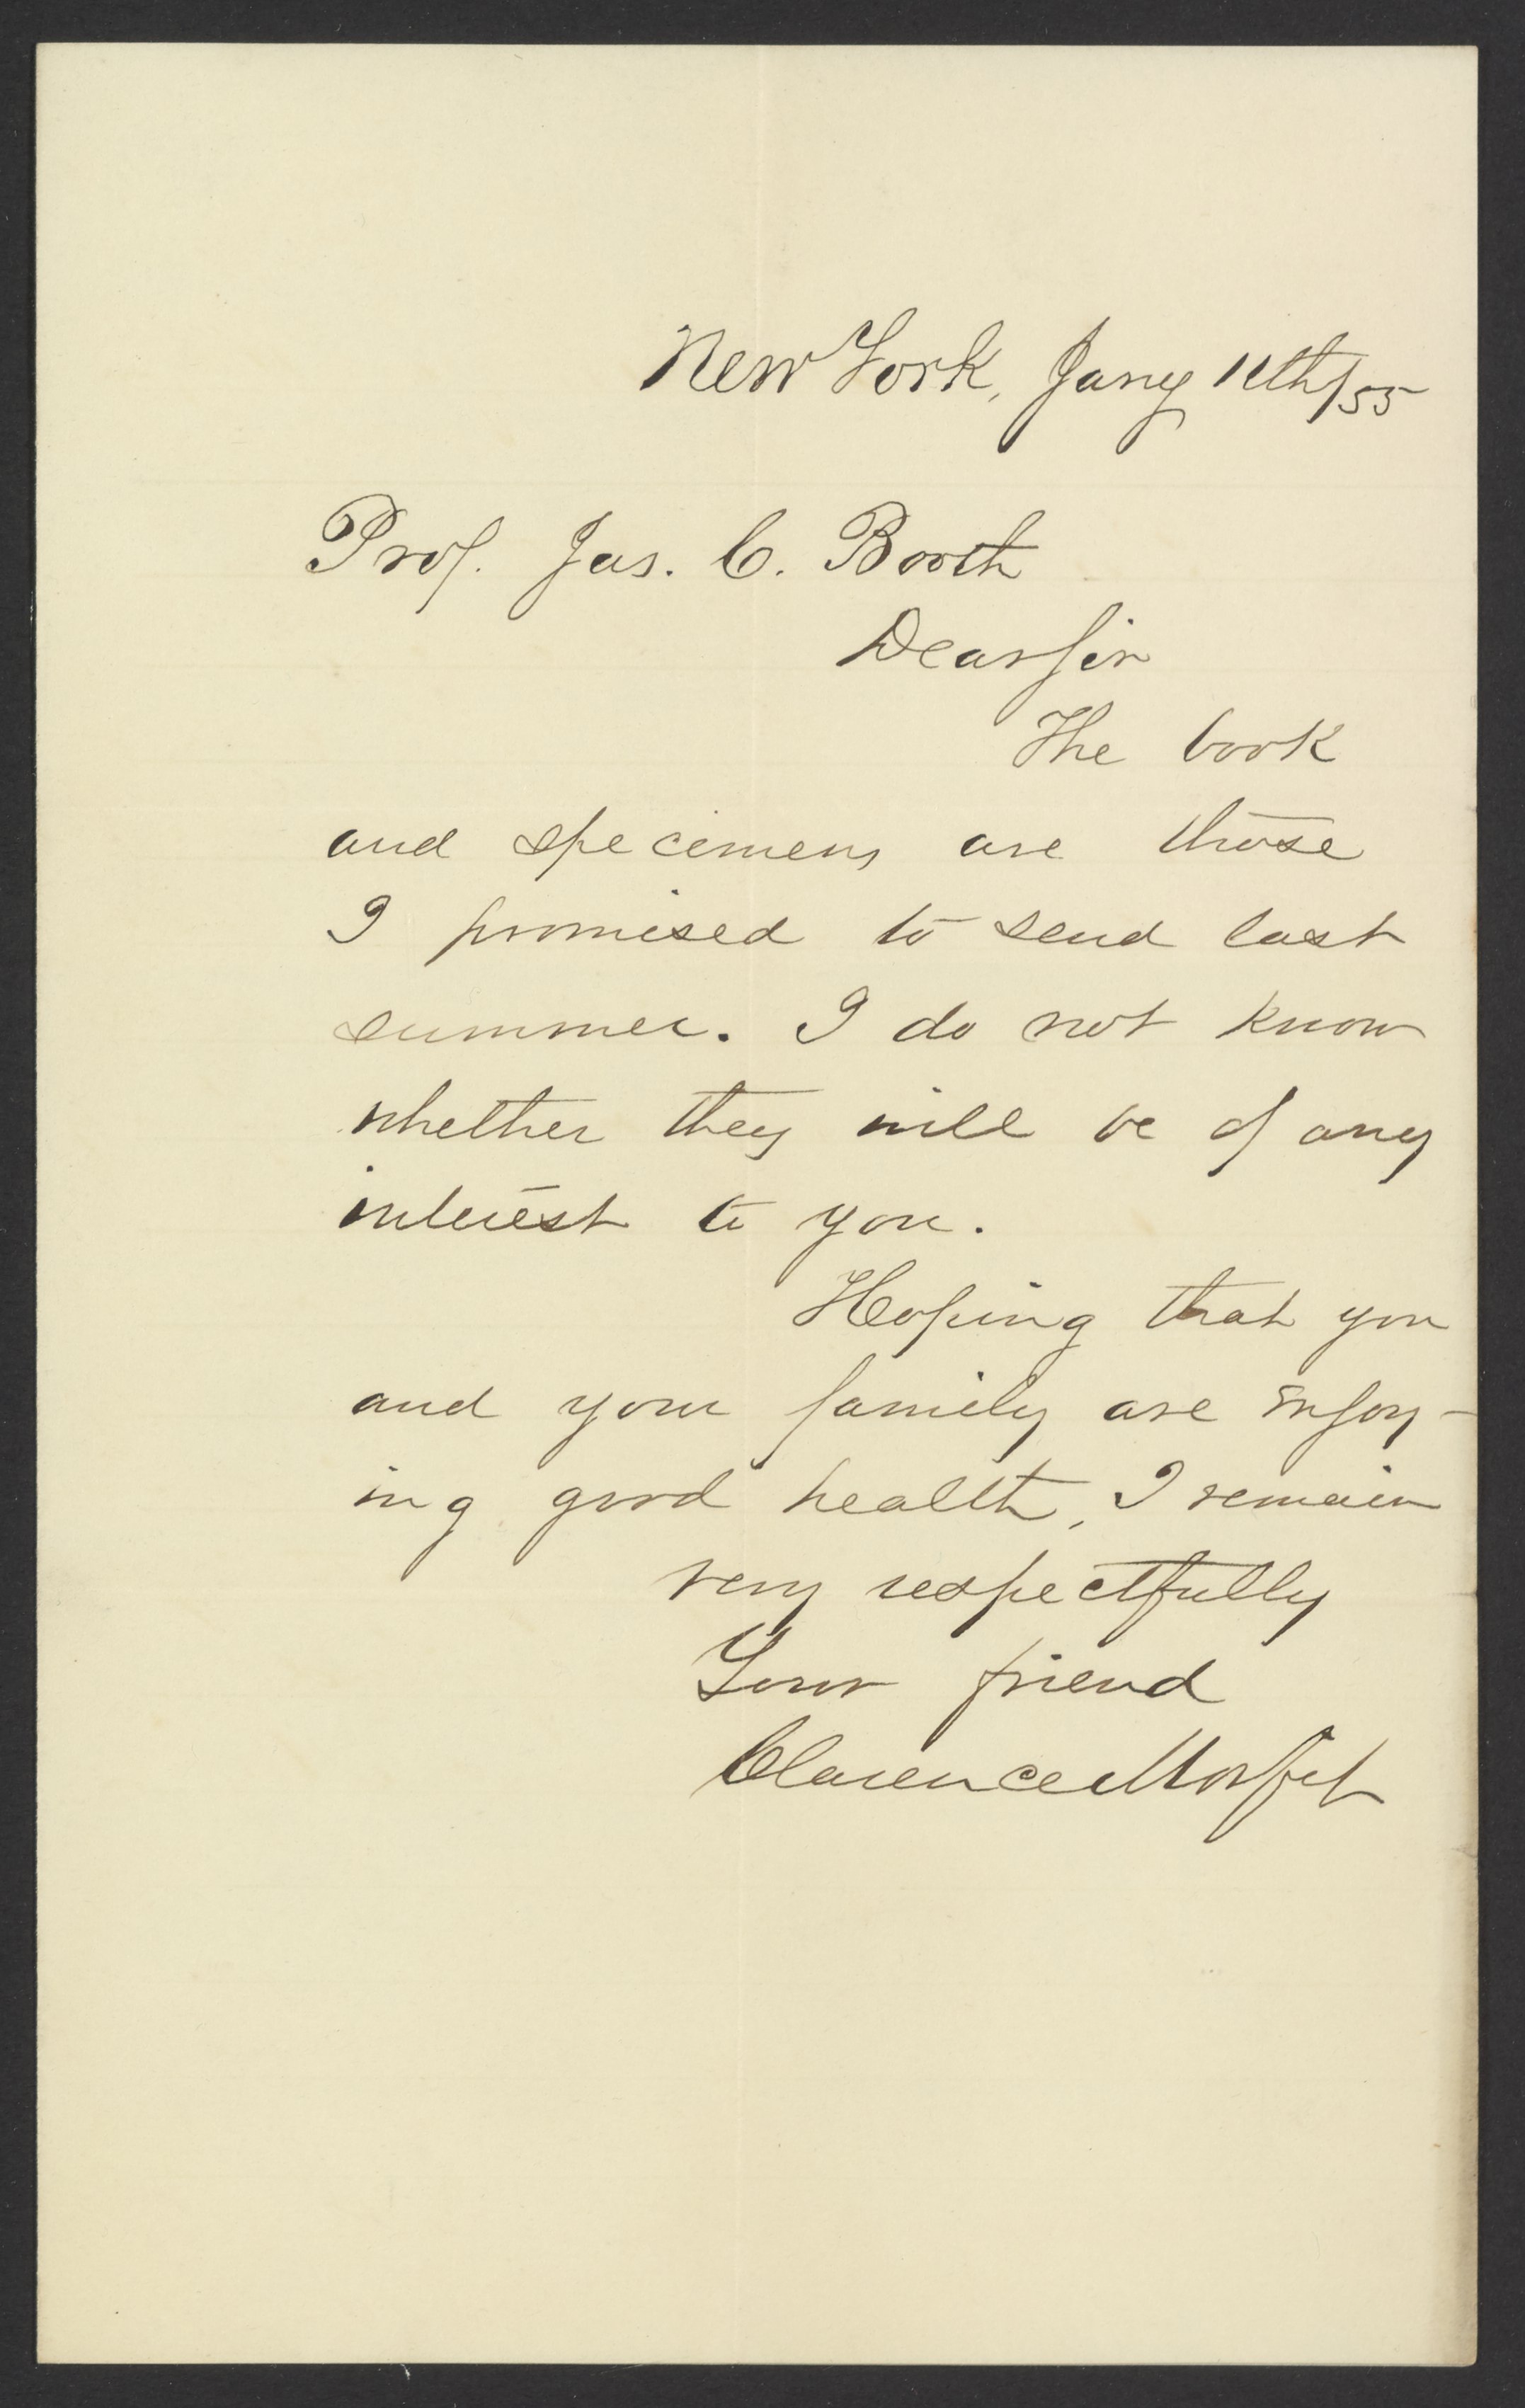 New York, Jany 11th/55
Prof. Jas. C. Booth
Dear Sir
The book
and specimens are those
I promised to send last
summer. I do not know
whether they will be of any
interest to you.
Hoping that you
and your family are enjoy-
ing good health, I remain
very respectfully
Your friend
Clarence Morfit